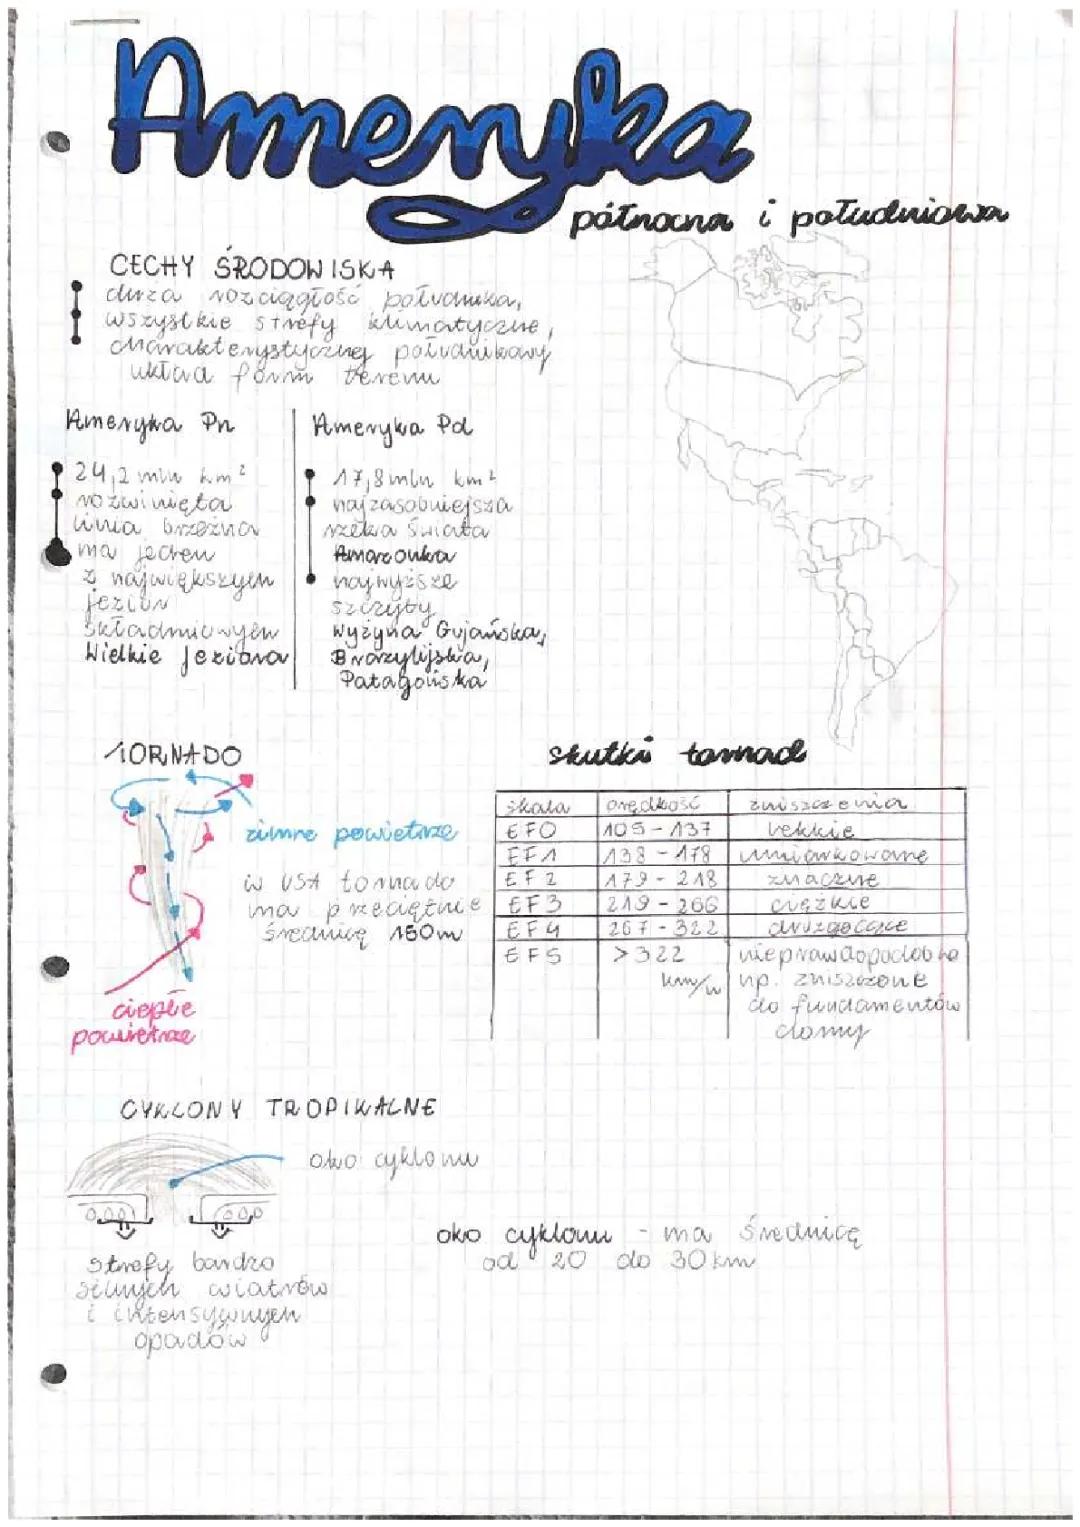 Ameryka
północna i południowa
CECHY ŚRODOWISKA
duża rozciągłość południka,
wszystkie strefy klimatyczne,
charakterystyczny południkowy
układ form terenu
Ameryka Pn
24,2 mln km²
rozwinięta
linia brzeżna
ma jeden
z największych
jezior
składniowych
Wielkie Jeziora
Ameryka Pd
17,8 mln km²
najzasobniejsza
rzeka świata
Amazonka
najwyższe
szczyty
Wyżyna Gujańska,
Brazylijska,
Patagońska
TORNADO
zimne powietrze
w USA tornado
ma przeciętnie
średnicę 150m
ciepłe
powietrze
skutki tornad
skala prędkość zniszczenia
EF0 105-137 lekkie
EF1 138-178 umiarkowane
EF2 179-218 znaczne
EF3 219-266 ciężkie
EF4 267-322 druzgocące
EF5 >322 nieprawdopodobne
km/h np. zniszczone
do fundamentów
domy
CYKLONY TROPIKALNE
oko cyklonu
strefy bardzo
silnych wiatrów
i intensywnych
opadów
oko cyklonu - ma średnicę
od 20 do 30 km